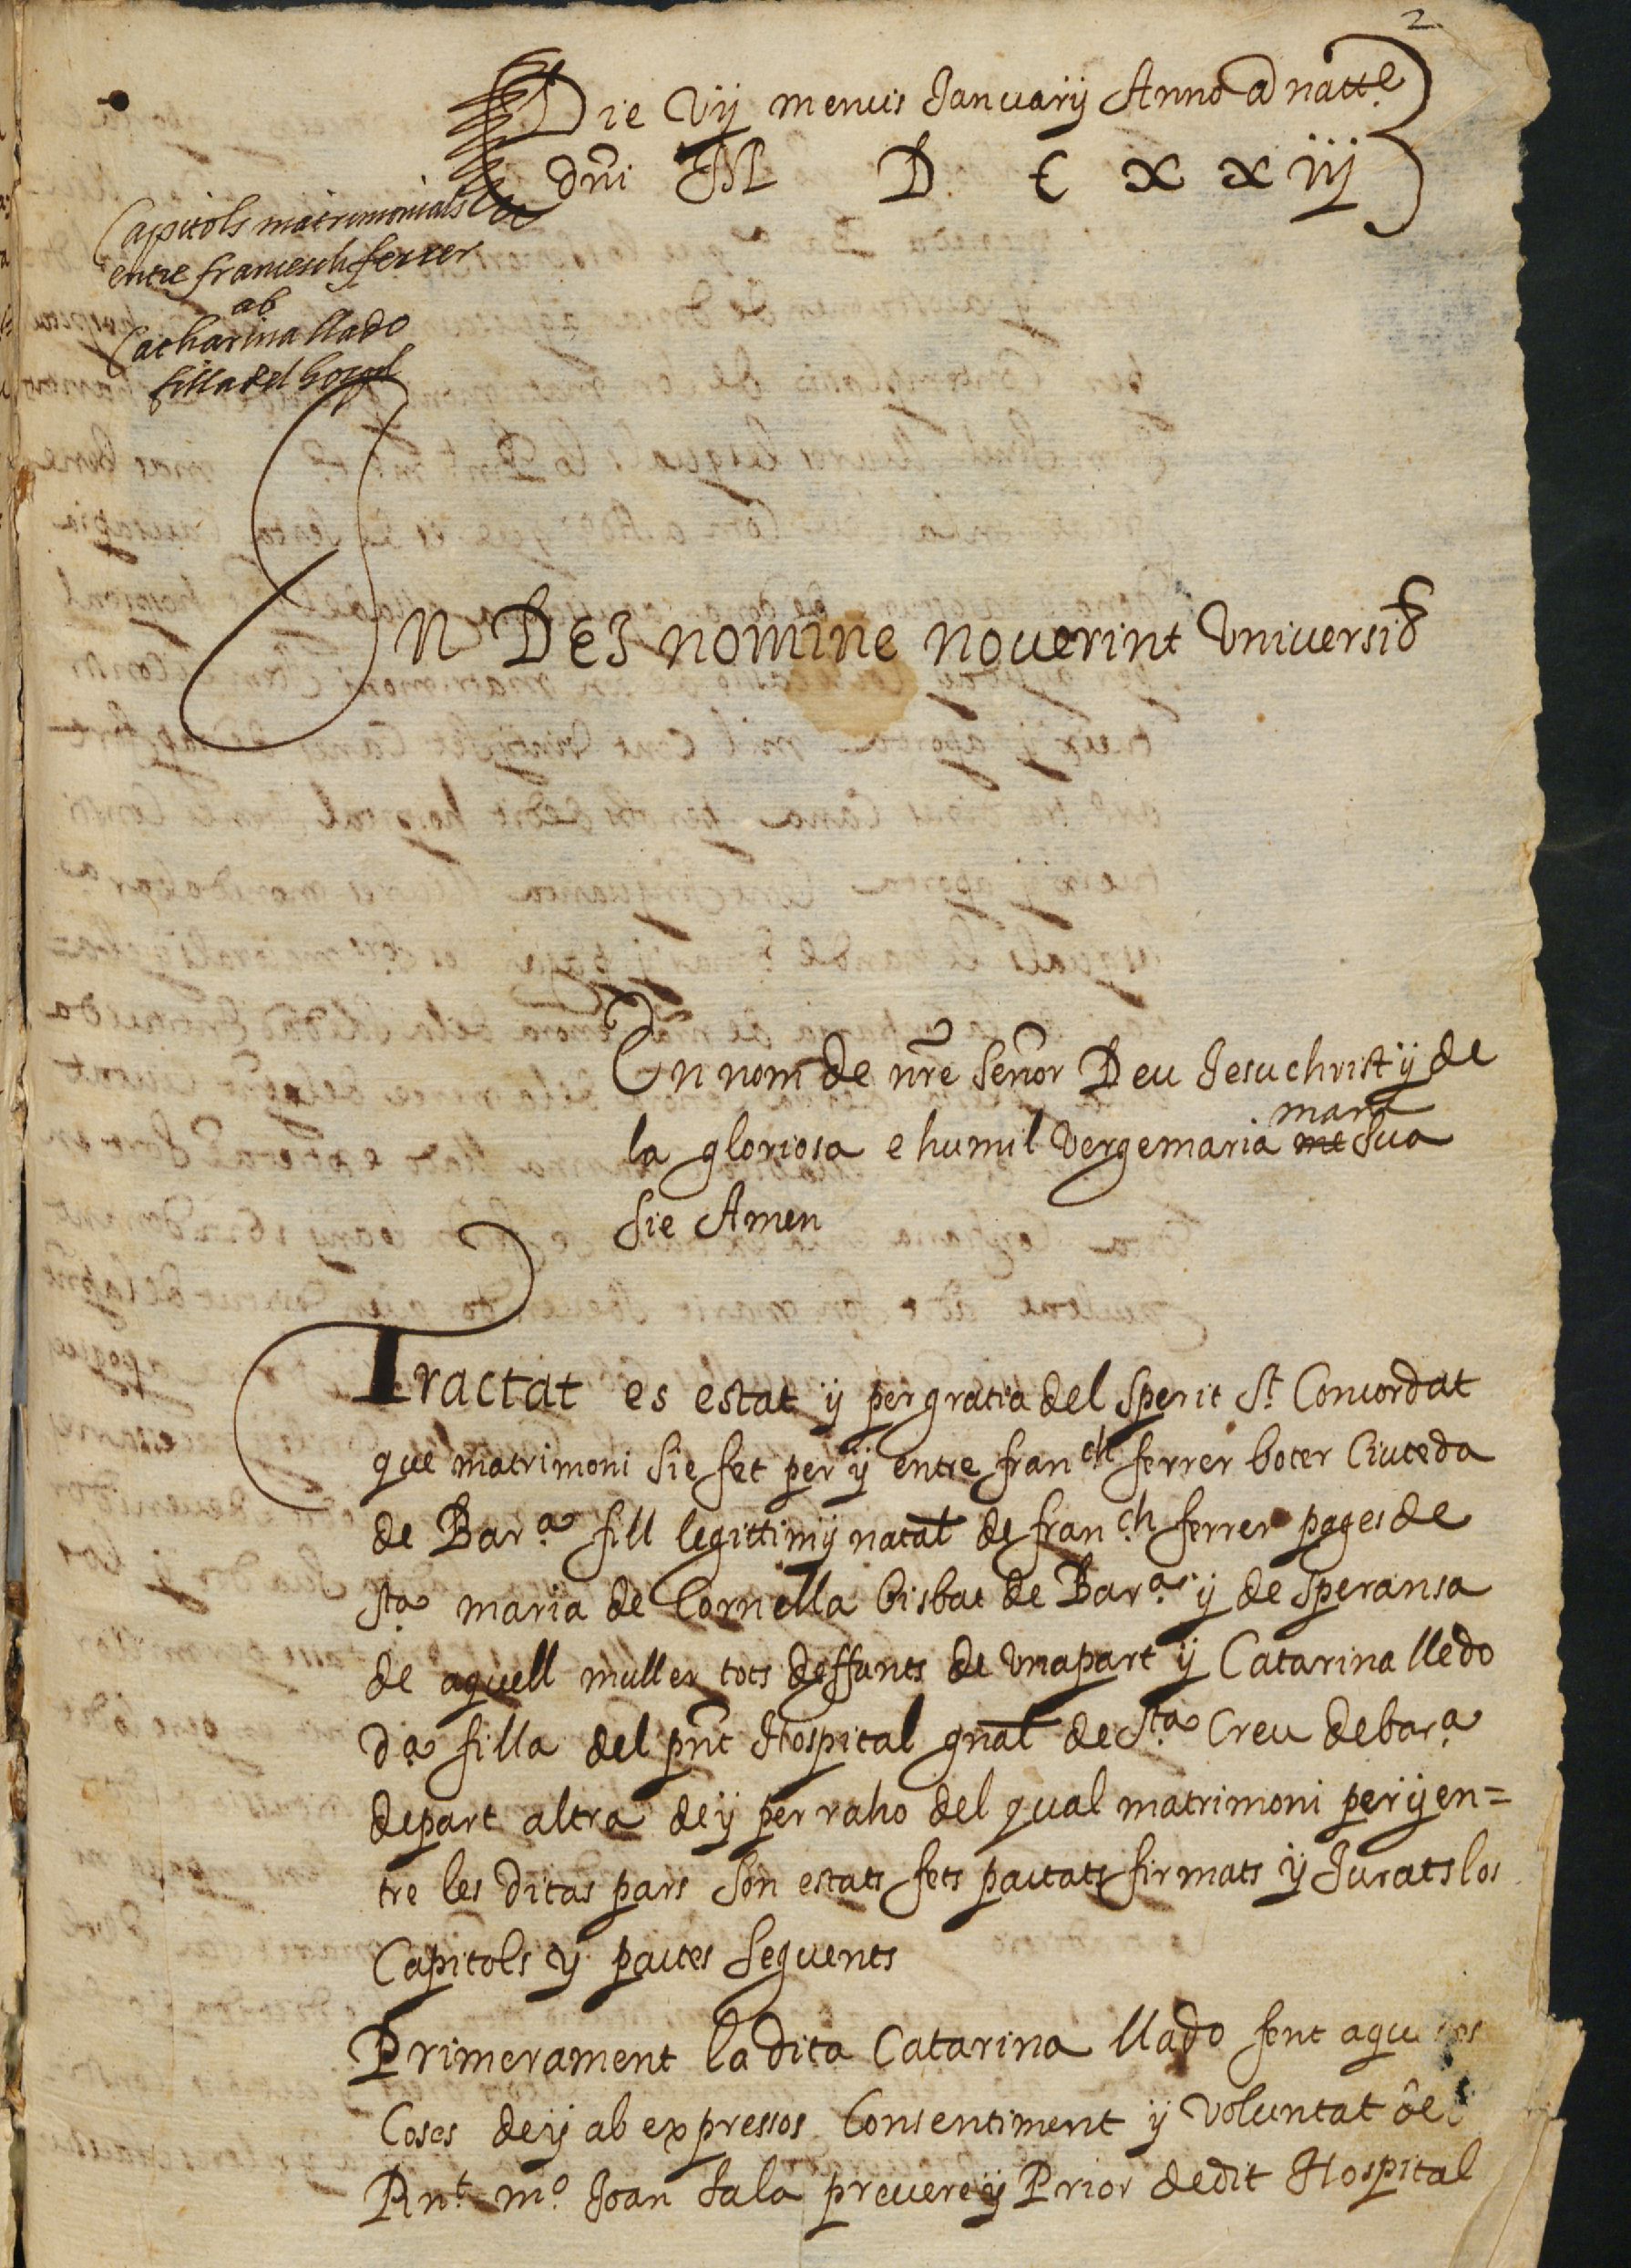 2
Die vij mensis Januarij Anno a natte
dni M D C x x iij
Capitols matrimonials
entre francesch ferrer
ab
Catharina llado
filla del hospl
In Dei nomine noverint universis
En nom de nre señor Deu Jesuchrist y de
la gloriosa e humil verge maria me mara sua
sie Amen
Tractat es estat y per gratia del sperit St Concordat
que matrimoni sie fet per y entre franch ferrer boter Ciuteda
de Bara fill legittim y natal de franch ferrer pages de
sta maria de Cornella bisbat de Bara y de speransa
de aquell muller tots deffunts de una part y Catarina lledo
da filla del pnt Hospital gnal de sta Creu de bara
de part altra de y per raho del qual matrimoni per y en=
tre les ditas pars son estats fets pactats firmats y Jurats los
Capitols y pactes seguents
Primerament la dita Catarina llado fent
Coses de y ab expressos Consentiment y voluntat
Rnt mo Joan sala prevere y Prior de dit Hospital